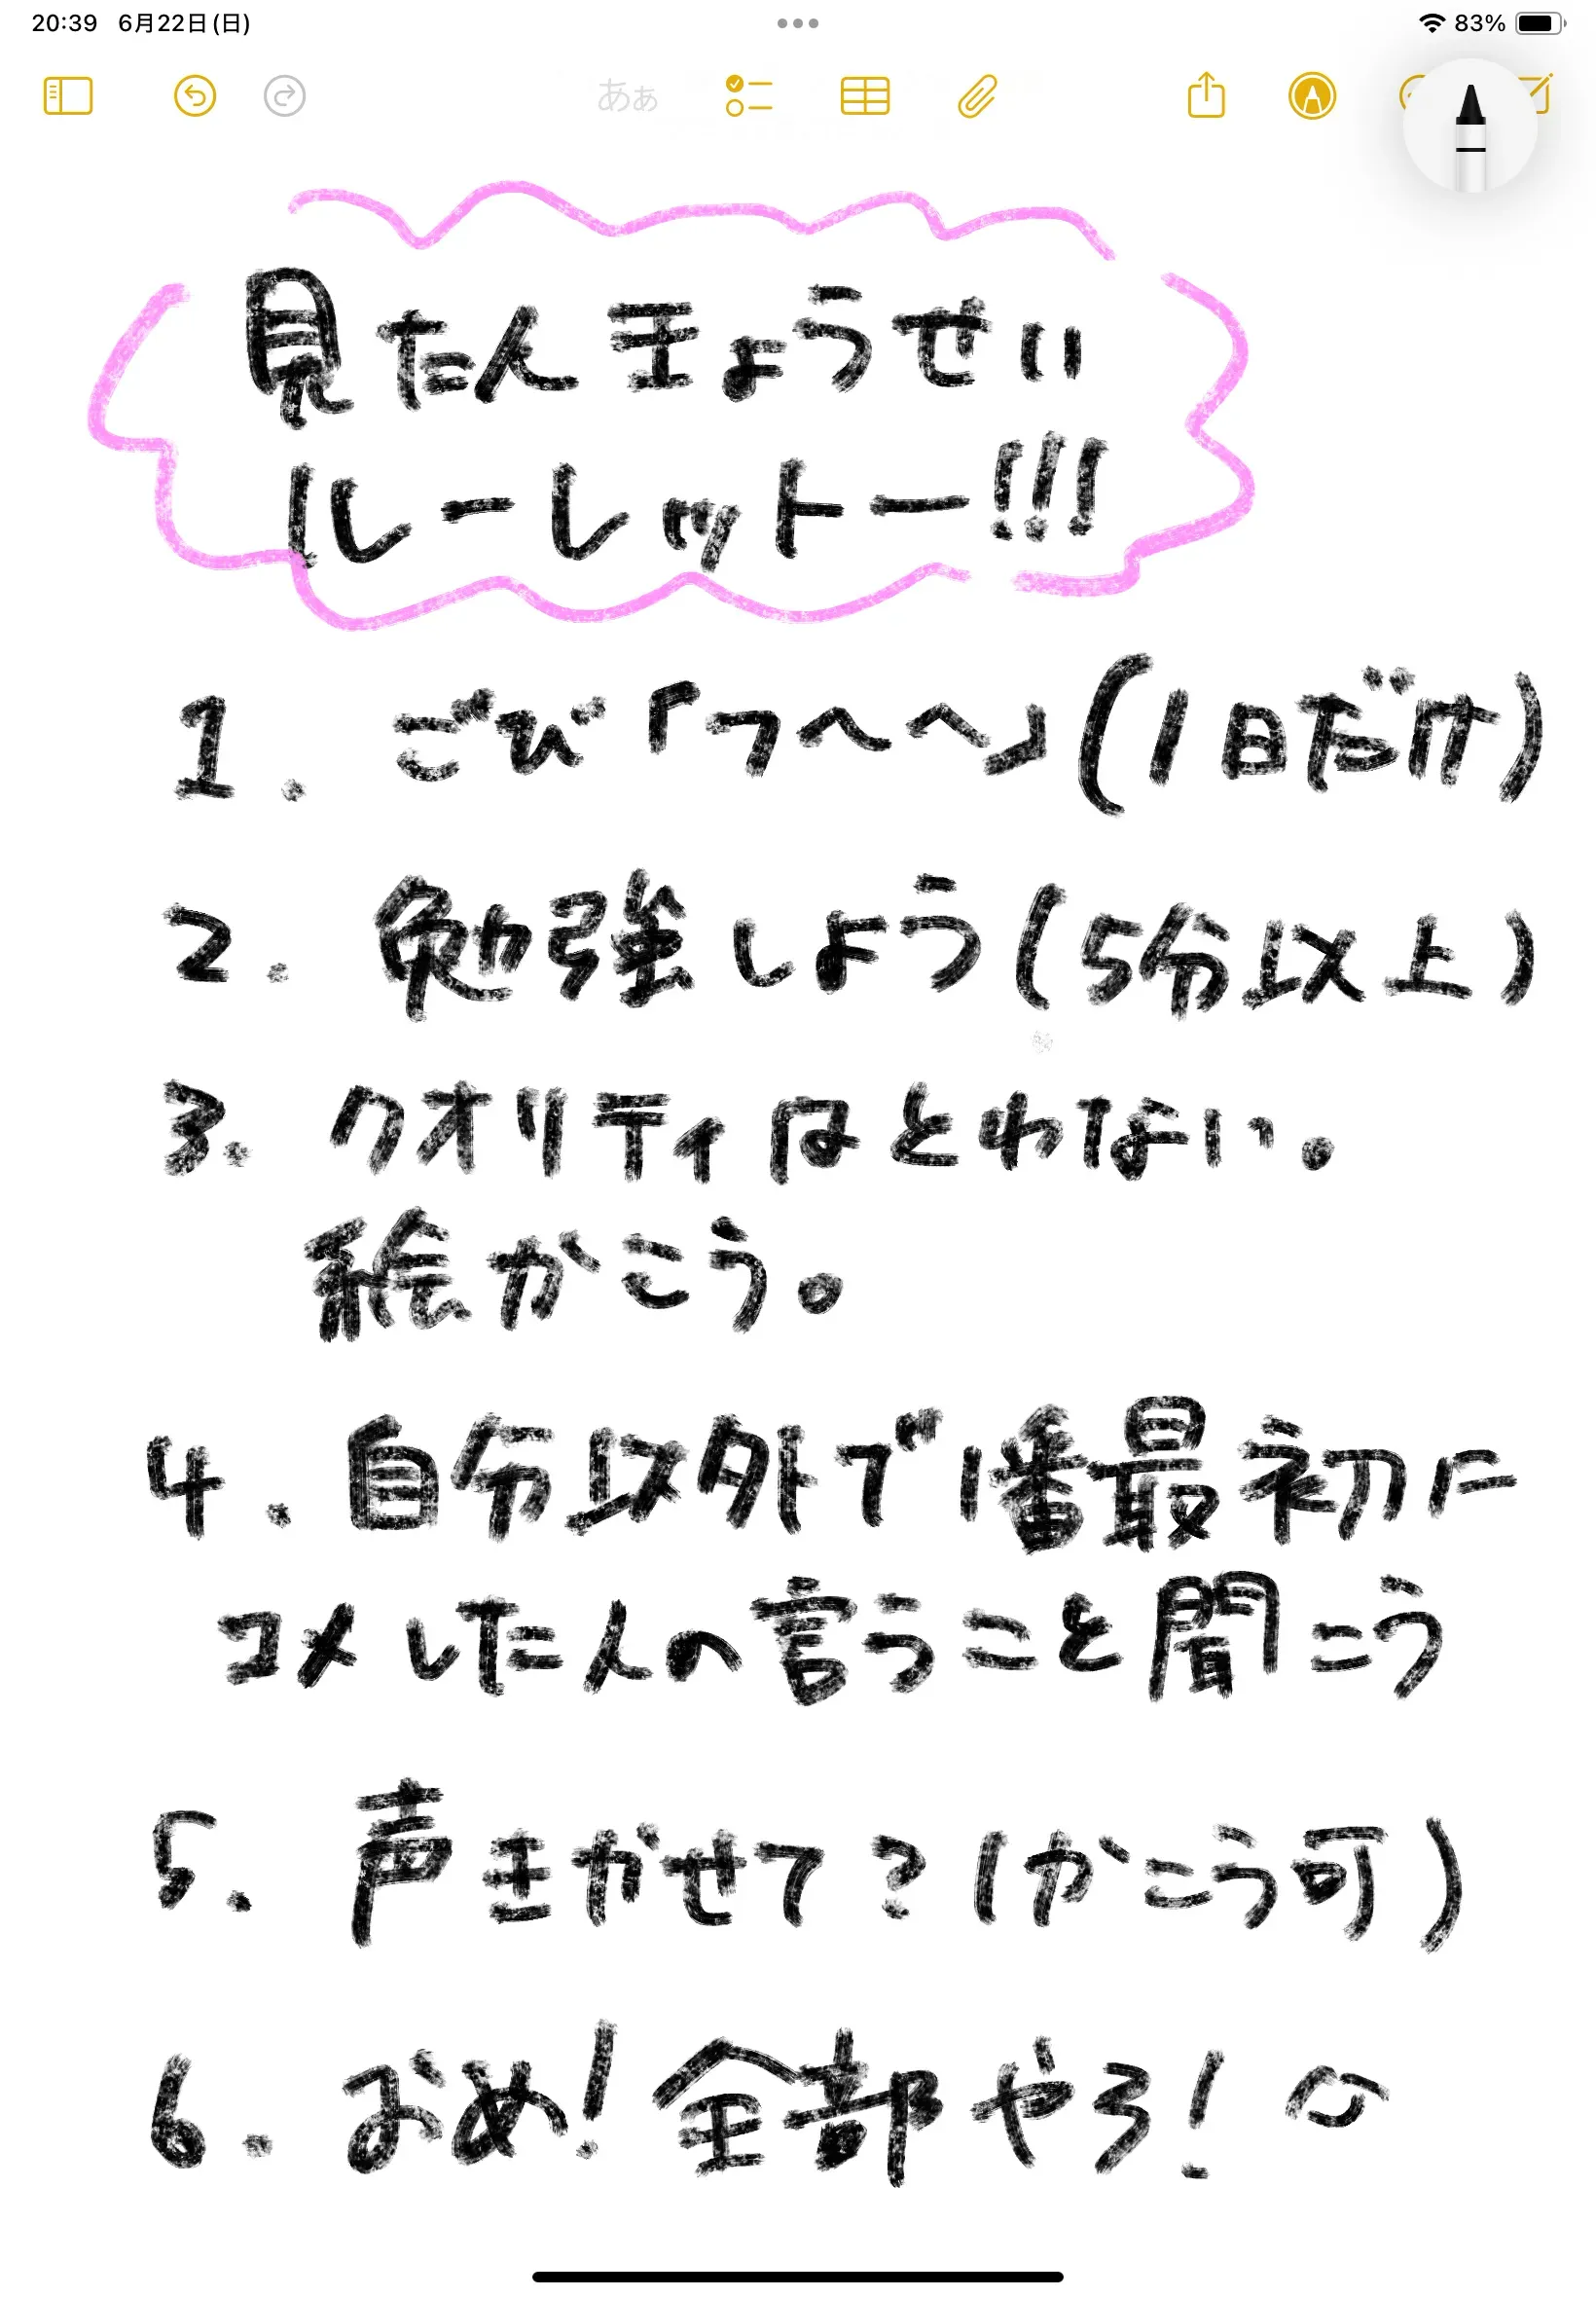 20:39 6月22日(日)
83%
あぁ
見たんきょうせい
ルーレットー!!!
1. ごび「フヘヘ」(1日だけ)
2. 勉強しよう(5分以上)
3. クオリティはとわない。
絵かこう。
4. 自分以外で1番最初に
コメした人の言うこと聞こう
5. 声きかせて?(かこう可)
6. おめ!全部やろ!